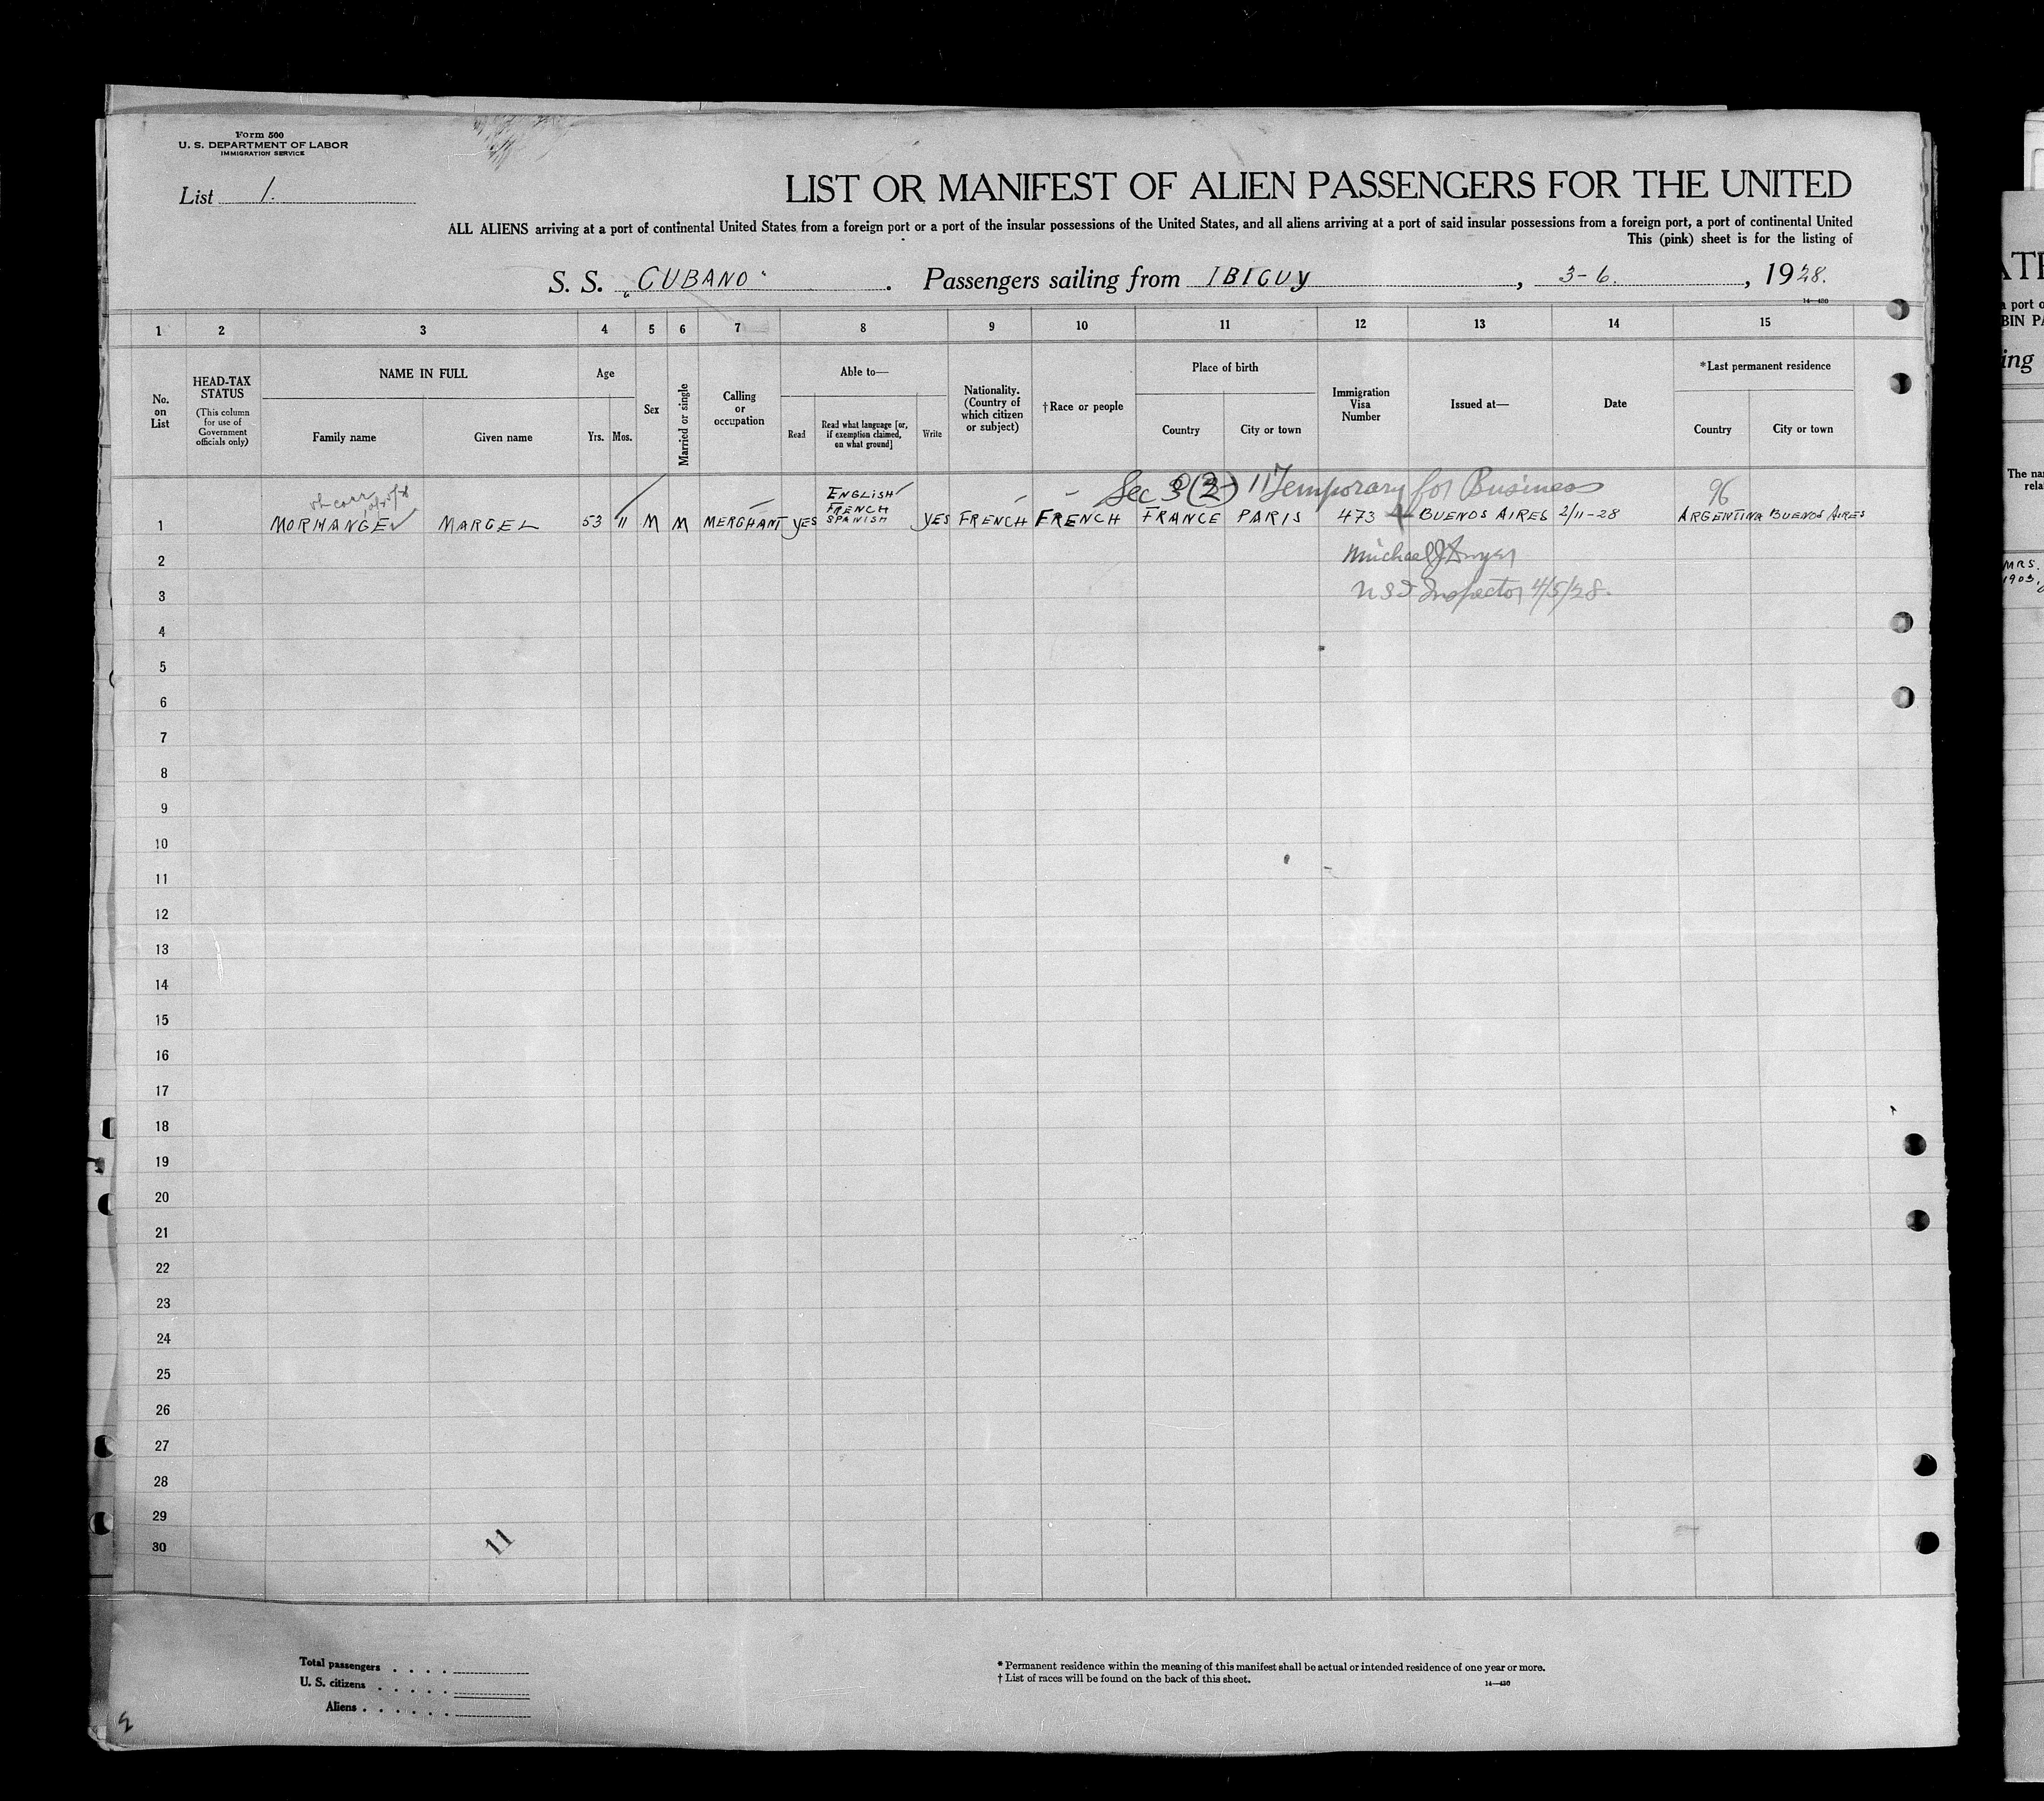 Form 500
U. S. DEPARTMENT OF LABOR
IMMIGRATION SERVICE
List 1.
LIST OR MANIFEST OF ALIEN PASSENGERS FOR THE UNITED
ALL ALIENS arriving at a port of continental United States from a foreign port or a port of the insular possessions of the United States, and all aliens arriving at a port of said insular possessions from a foreign port, a port of continental United
This (pink) sheet is for the listing of
S. S. „CUBANO“. Passengers sailing from IBICUY, 3-6., 1928.
14—430
1 2 3 4 5 6 7 8 9 10 11 12 13 14 15
No. on List
HEAD-TAX STATUS
(This column for use of Government officials only)
NAME IN FULL
Family name Given name
Age
Yrs. Mos.
Sex
Married or single
Calling or occupation
Able to—
Read
Read what language [or, if exemption claimed, on what ground]
Write
Nationality. (Country of which citizen or subject)
†Race or people
Place of birth
Country City or town
Immigration Visa Number
Issued at—
Date
*Last permanent residence
Country City or town
Sec 3(2) Temporary for Business
96
1 MORHANGE MARCEL 53 11 M M MERCHANT YES ENGLISH FRENCH SPANISH YES FRENCH FRENCH FRANCE PARIS 473 BUENOS AIRES 2/11-28 ARGENTINA BUENOS AIRES
2 Michael J Dwyer
3 USI Inspector 4/5/28.
4
5
6
7
8
9
10
11
12
13
14
15
16
17
18
19
20
21
22
23
24
25
26
27
28
29
30
11
Total passengers
U. S. citizens
Aliens
* Permanent residence within the meaning of this manifest shall be actual or intended residence of one year or more.
† List of races will be found on the back of this sheet.
14—430
MRS.
1903,